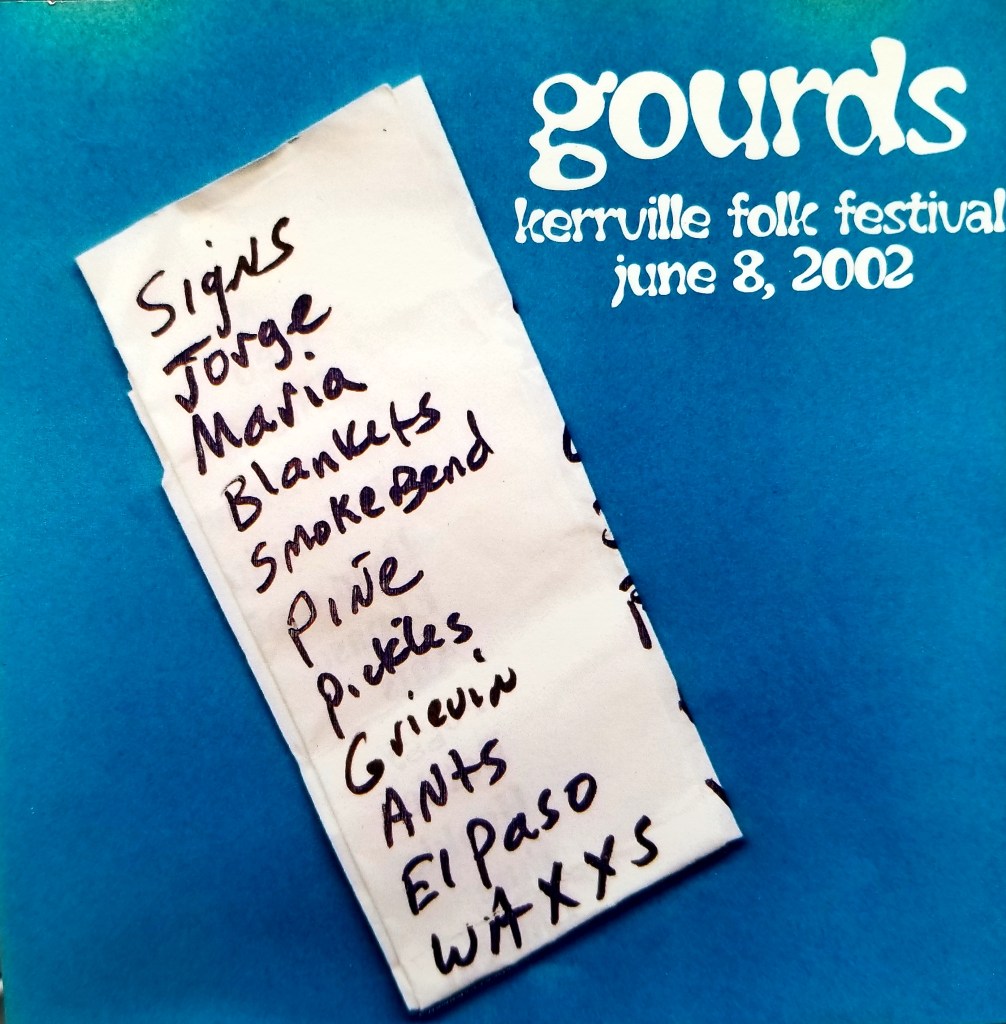 gourds
kerrville folk festival
june 8, 2002
Signs
Jorge
Maria
Blankets
SmokeBend
PiÑe
Pickles
Grievin
ANts
El Paso
WAXXS